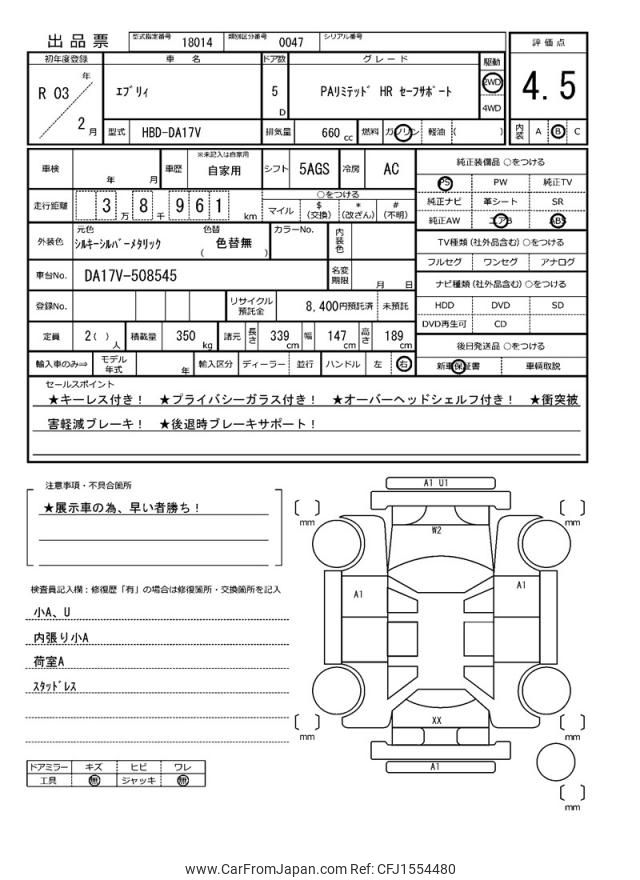 出品票 型式指定番号 18014 類別区分番号 0047 シリアル番号
評価点
4.5
内装 A B C
初年度登録 車名 ドア数 グレード 駆動
R 03 年 2 月
ｴﾌﾞﾘｨ
5 D
PAﾘﾐﾃｯﾄﾞ HR ｾｰﾌｻﾎﾟｰﾄ
2WD
4WD
型式 HBD-DA17V 排気量 660 cc 燃料 ガソリン 軽油 ( )
車検 年 月 車歴 ※未記入は自家用 自家用 シフト 5AGS 冷房 AC
走行距離 3 万 8 千 9 6 1 km
○をつける
マイル $ (交換) * (改ざん) # (不明)
外装色 元色 ｼﾙｷｰｼﾙﾊﾞｰﾒﾀﾘｯｸ 色替 ( 色替無 ) カラーNo. 内装色
車台No. DA17V-508545 名変期限 月 日
登録No. リサイクル預託金 8,400円預託済 未預託
定員 2( ) 人 積載量 350 kg 諸元 長さ 339 cm 幅 147 cm 高さ 189 cm
輸入車のみ⇒ モデル年式 年 輸入区分 ディーラー 並行 ハンドル 左 右
純正装備品 ○をつける
PS PW 純正TV
純正ナビ 革シート SR
純正AW エアB ABS
TV種類 (社外品含む) ○をつける
フルセグ ワンセグ アナログ
ナビ種類 (社外品含む) ○をつける
HDD DVD SD
DVD再生可 CD
後日発送品 ○をつける
新車保証書 車輌取説
セールスポイント
★キーレス付き！ ★プライバシーガラス付き！ ★オーバーヘッドシェルフ付き！ ★衝突被
害軽減ブレーキ！ ★後退時ブレーキサポート！
注意事項・不具合箇所
★展示車の為、早い者勝ち！
検査員記入欄：修復歴「有」の場合は修復箇所・交換箇所を記入
小A、U
内張り小A
荷室A
ｽﾀｯﾄﾞﾚｽ
ドアミラー キズ ヒビ ワレ
工具 無 ジャッキ 無
A1 U1
mm
mm
W2
A1
A1
mm
mm
XX
A1
mm
www.CarFromJapan.com Ref: CFJ1554480